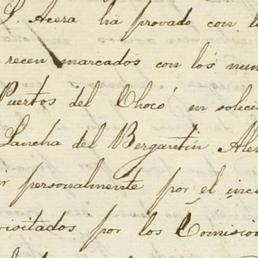 S. Acera ha provado con l
recen marcados con los num
Puertos del Chocó en solici
Lancha del Bergantin Aler
ir personalmente por el inc
visitados por los Comision